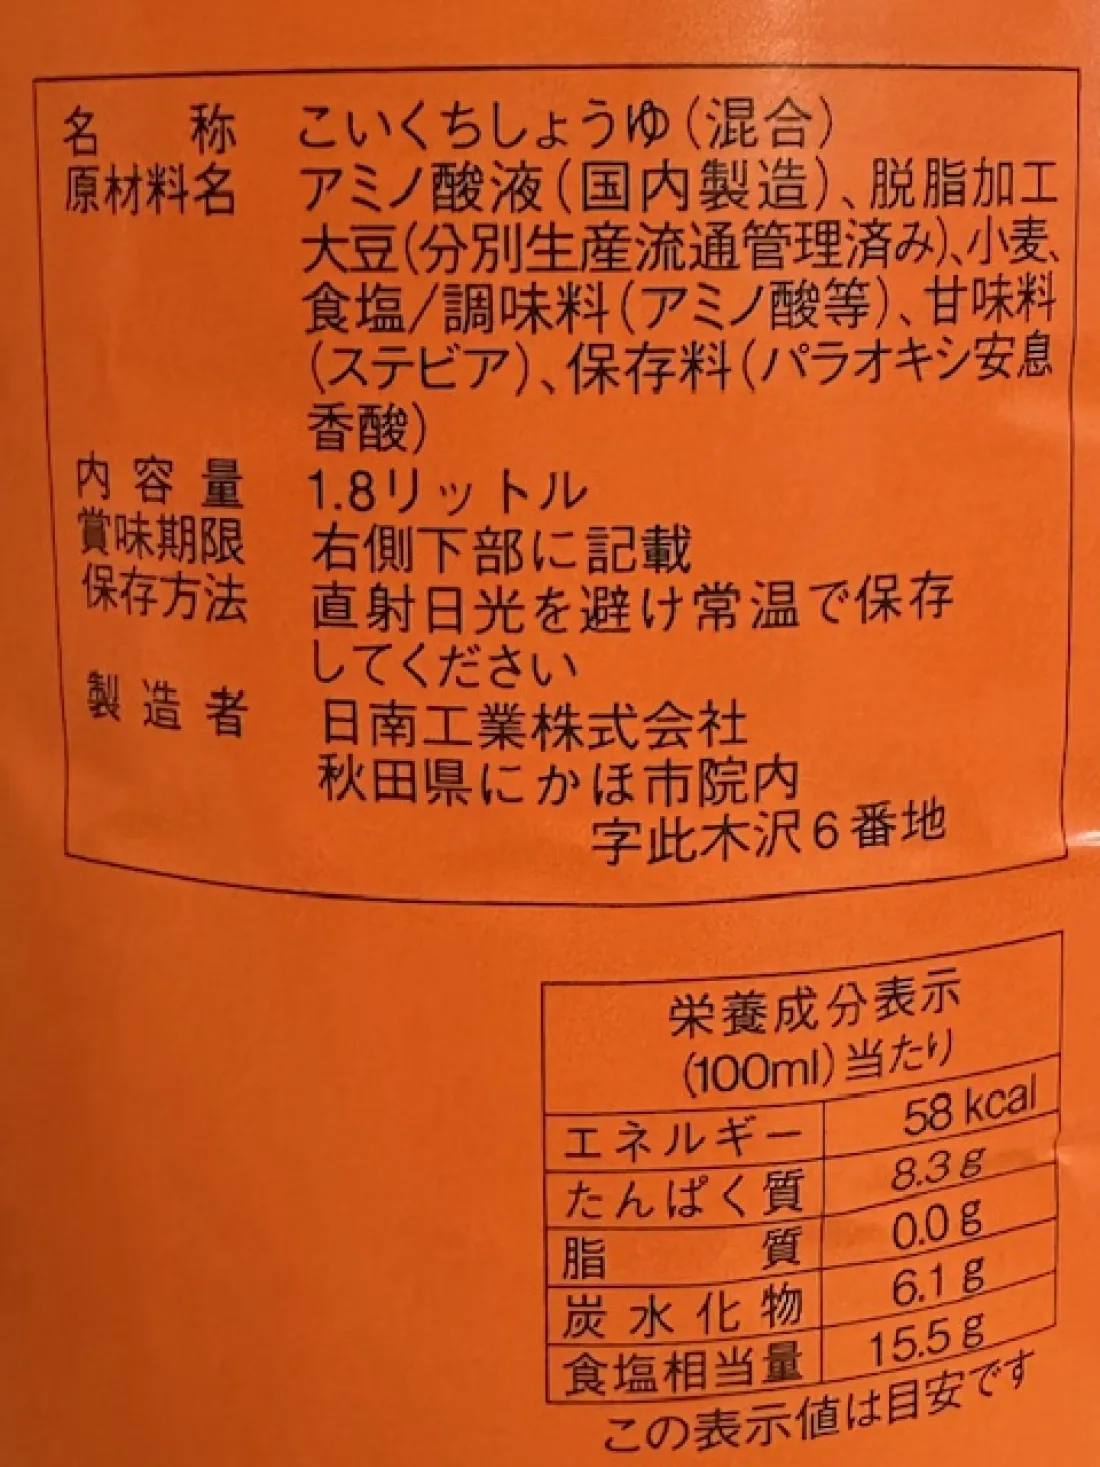 名称 こいくちしょうゆ(混合)
原材料名 アミノ酸液(国内製造)、脱脂加工
大豆(分別生産流通管理済み)、小麦、
食塩/調味料(アミノ酸等)、甘味料
(ステビア)、保存料(パラオキシ安息
香酸)
内容量 1.8リットル
賞味期限 右側下部に記載
保存方法 直射日光を避け常温で保存
してください
製造者 日南工業株式会社
秋田県にかほ市院内
字此木沢6番地
栄養成分表示
(100ml)当たり
エネルギー 58 kcal
たんぱく質 8.3 g
脂質 0.0 g
炭水化物 6.1 g
食塩相当量 15.5 g
この表示値は目安です